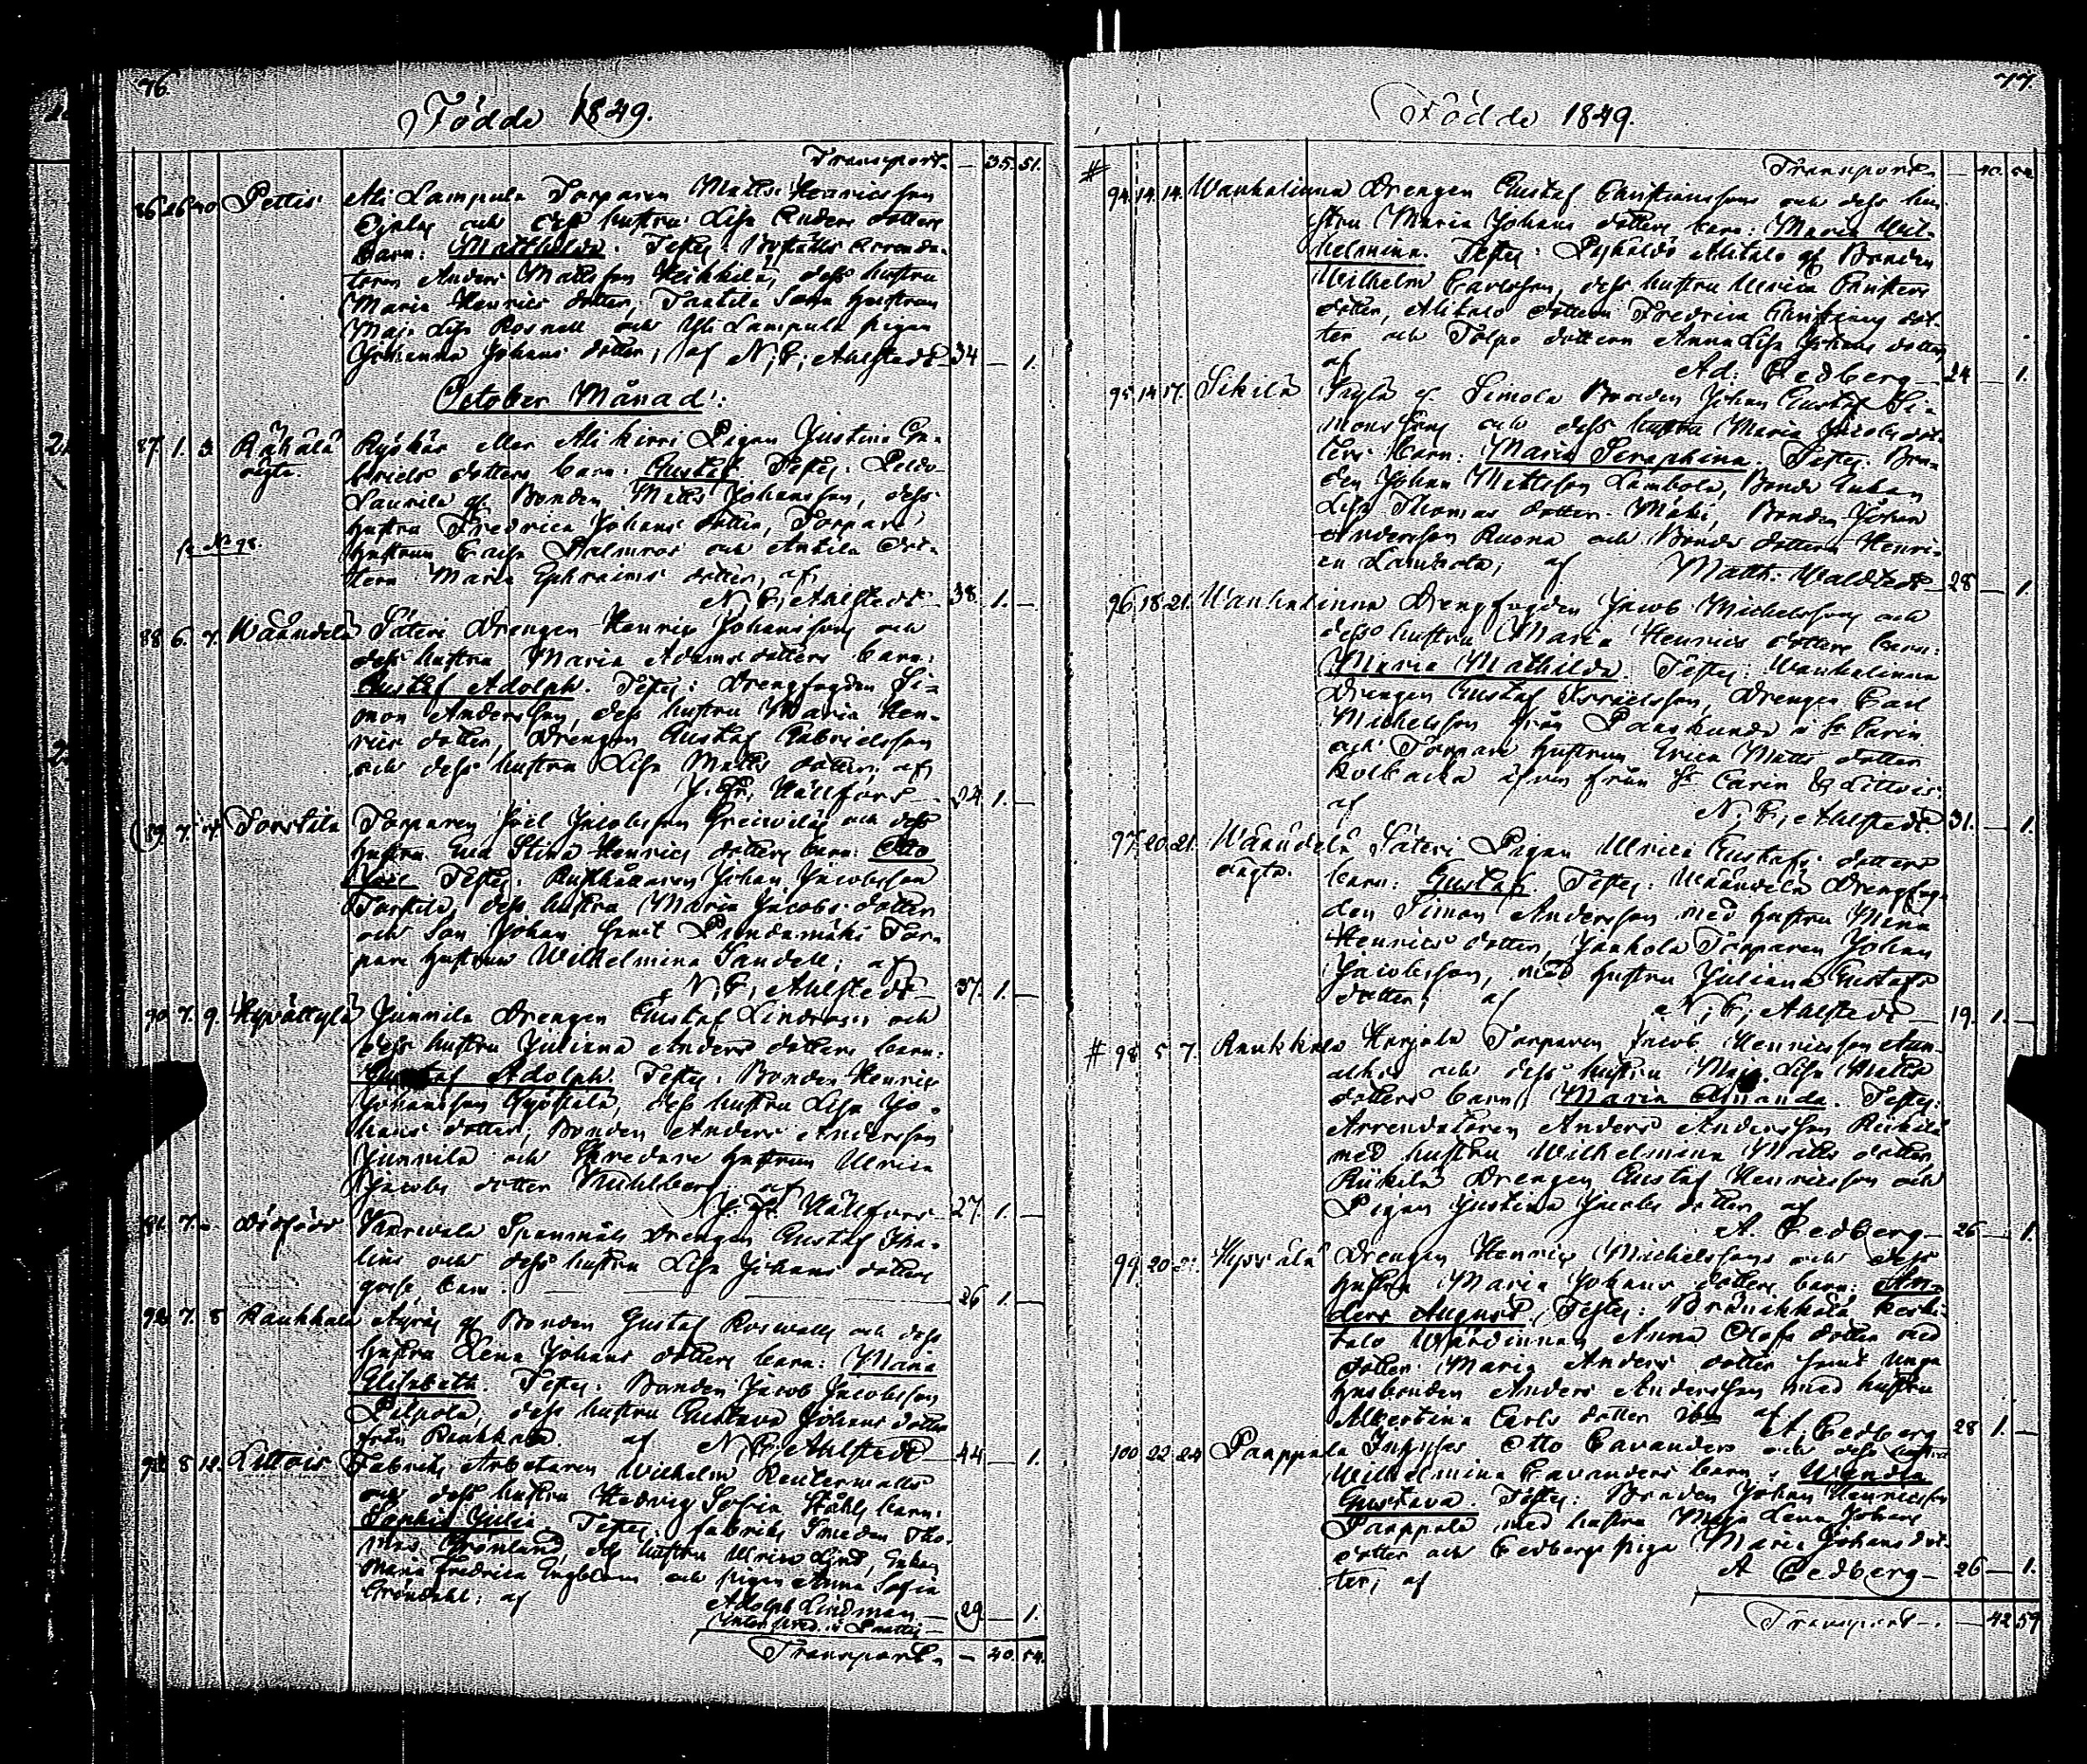 76.
Födde 1849.
Transport - 35. 51.
86 26 30 Pettis Ali Lampula Torparen Matts Henricsson
och dess hustru Lisa Anders dotters
barn: Mathilda. Testes: Arrenda-
toren Anders Mattsson Heikkilä, dess hustru
Maria Henrics dotter, Tortila Hustrun
Maja Lisa Rosnell och Yli Lampula pigan
Johanna Johans dotter, af N, C, Ahlstedt 34 - 1.
October Månad:
87. 1. 3. Rähälä Ryökäs eller Ali kirri Pigan Justina Ga-
oägta briels dotters barn: Gustaf. Testes: Peldo-
Laurila gl Bonden Matts Johansson, dess
hustru Fredrica Johans dotter, Torpare
se No 98. hustrun Caisa Palmroos och Antila dot-
tern Maria Ephraims dotter, af
N, C, Ahlstedt - 38. 1. -
88 6. 7. Wäändelä Säteri Drengen Henric Johansson och
dess hustru Maria Adams dotters barn:
Gustaf Adolph. Testes: Drengfogden Si-
mon Andersson, dess hustru Maria Hen-
rics dotter, Drengen Gustaf Gabrielsson
och dess hustru Lisa Matts dotter, af
Hällfors - 24. 1. -
89. 7. 14. Torstila Torparen Joël Jacobsson och dess
hustru Eva Stina Henrics dotters barn: Otto
Joel. Testes: Rusthållaren Johan Jacobsson
Torstila, dess hustru Maria Jacobs dotter
och Son Johan samt Pundamäki Tor-
pare hustrun Wilhelmina Sandell; af
N, C, Ahlstedt - 37. 1. -
90. 7. 9. Hyvättylä Junnila Drengen Gustaf Lindroos och
dess hustru Juliana Anders dotters barn:
Gustaf Adolph. Testes: Bonden Henric
Johansson dess hustru Lisa Jo-
hans dotter, Bonden Anders Andersson
Junnila och Skredare hustrun Ulrica
Jacobs dotter Mühlberg; af
Hällfors - 27. 1. -
91. 7. - dödfödd Spanmåls Drengen Gustaf
och dess hustru Lisa Johans dotters
gosse barn. 26 1. -
92. 7. 8 Raukkala Äyräs gl Bonden Gustaf Roswall och dess
hustru Lena Johans dotters barn: Maria
Elisabeth. Testes: Bonden Jacob Jacobsson
Pilpola, dess hustru Gustava Johans dotter
från Raukkala. af N, C, Ahlstedt - 44 - 1.
93. 8 12. Littois Fabriks Arbetaren Wilhelm Reuterwalls
och dess hustru Hedvig Sofia Ståhls barn:
Julia. Testes: fabriks Smeden Tho-
mas Grönlund, dess hustru Ulrica Lind, Enkan
Maria Fredrica Engblom och pigan Anna Sofia
Gröndahl; af Adolph Lindman - 29 - 1.
Transport. - 40. 54.
77.
Födde 1849.
Transport - 40. 54.
# 94. 14. 14. Wanhalinna Drengen Gustaf Christianssons och dess hu-
stru Maria Johans dotters barn: Maria Wil-
helmina. Testes: Alitalo gl Bonden
Wilhelm Carlsson, dess hustru Ulrica Christiers
dotter, Alitalo dottern Fredrica Christiers dot-
ter och Tolpo dottern Anna Lisa Johans dotter
af Ad: Cedberg - 24 - 1.
95. 14. 17. Sikilä gl Simola Bonden Johan Gustaf Si-
monssons och dess hustru Maria Jacobs dot-
ters barn: Maria Seraphina. Testes: Bon-
den Johan Mattsson Lambola, Bonde Enkan
Lisa Thomas dotter Mäki, Bonden Johan
Andersson Ruona och Bonde dottern Henri-
ca Lambola, af Matth. Waldstedt - 28 - 1.
96. 18. 21. Wanhalinna Drengfogden Jacob Michelsson och
dess hustru Maria Henrics dotters barn:
Maria Mathilda. Testes: Wanhalinna
Drengen Gustaf Israelsson, Drengen Carl
Michelsson från Paaskunda i St Carin
och Torpare hustrun Erica Matts dotter
Kolkacka äfven från St Carin & Littois
af N, C, Ahlstedt 31. - 1.
97. 20. 21. Wäändelä Säteri Pigan Ulrica Gustafs dotters
oägta. barn: Gustaf. Testes: Wäändelä Drengfog-
den Simon Andersson med hustru Maria
Henrics dotter, Jankola Torparen Johan
Jacobsson, med hustru Juliana Gustafs
dotter; af N, C, Ahlstedt - 19. 1. -
# 98. 5 7. Raukkala Harjola Torparen Jacob Henricsson
och dess hustru Maja Lisa Matts
dotters barn: Maria Amanda. Testes:
Arrendatoren Anders Andersson Riikilä
med hustru Wilhelmina Matts dotter
Riikilä Drengen Gustaf Henricsson och
Pigan Justina Jacobs dotter af
A. Cedberg - 26 - 1.
99. 20 21. Hyvälä Drengen Henric Michelssons och dess
hustru Maria Johans dotters barn: An-
ders August. Testes: Keski-
talo Wärdinnan Anna Olofs dotter med
dotter Maria Anders dotter samt unga
husbonden Anders Andersson med hustru
Albertina Carls dotter af A. Cedberg 28 1. -
100 22 24 Paappala Inhyses Otto Cavanders och dess hustru
Wilhelmina Cavanders barn: Wendla
Gustava. Testes: Bonden Johan Henricsson
Paappala med hustru Maja Lena Johans
dotter och Cedbergs piga Maria Johans dot-
ter; af A Cedberg - 26 - 1.
Transport - . - 42 59